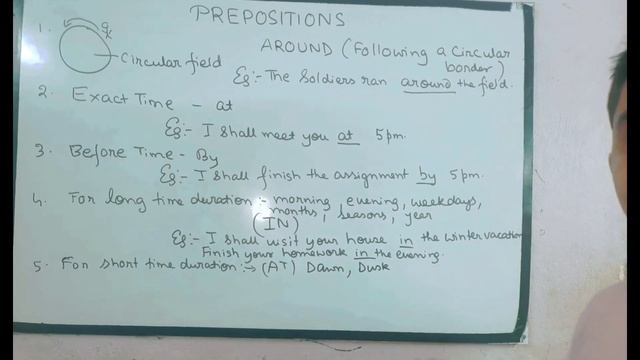 PREPOSITIONS
1.
Circular field
AROUND (Following a circular
border)
Eg:- The Soldiers ran around the field.
2. Exact Time - at
Eg:- I shall meet you at 5pm.
3. Before Time - By
Eg:- I shall finish the assignment by 5pm.
4. For long time duration :- morning, evening, weekdays,
months, seasons, year
(IN)
Eg:- I shall visit your house in the winter vacation
Finish your homework in the evening.
5. For short time duration :-> (AT) Dawn, Dusk